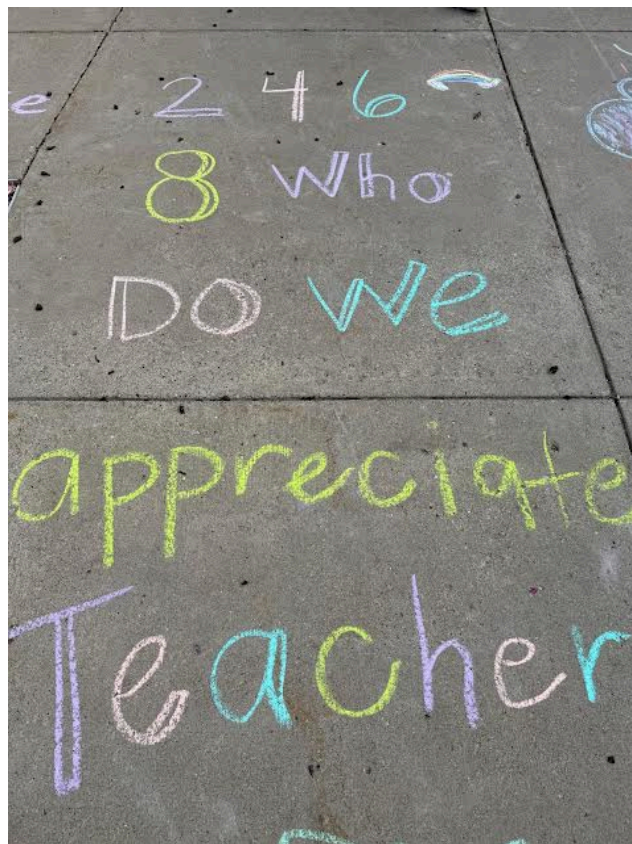 2 4 6
8 Who
Do We
appreciate
Teacher